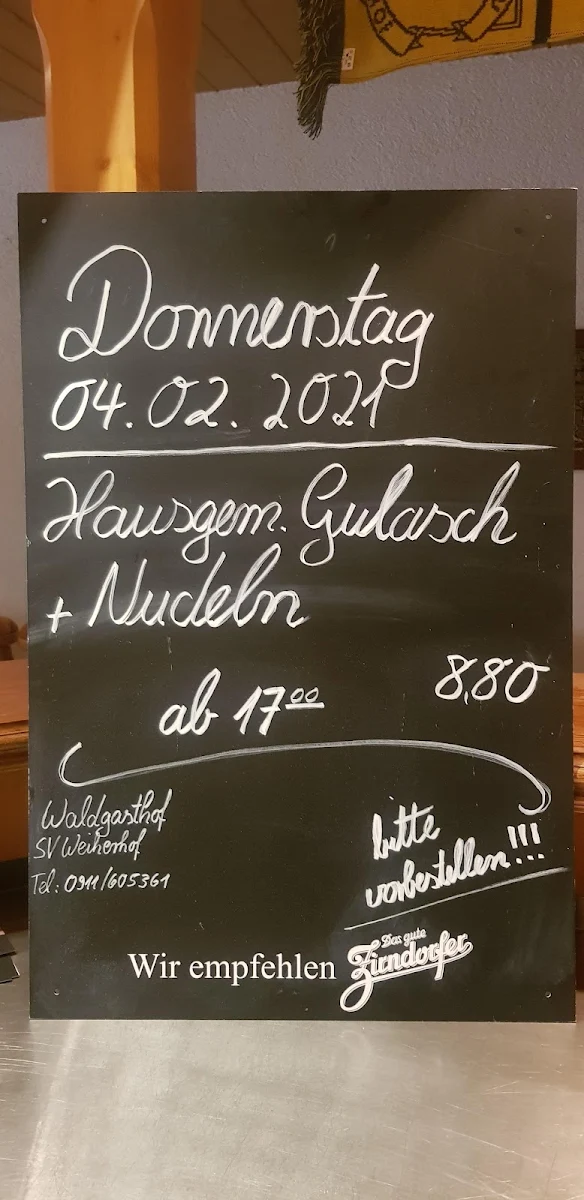 Donnerstag
04.02.2021
Hausgem. Gulasch
+ Nudeln
8,80
ab 17⁰⁰
Waldgasthof
SV Weiherhof
Tel: 0911/605361
bitte
vorbestellen!!!
Wir empfehlen Das gute Zirndorfer